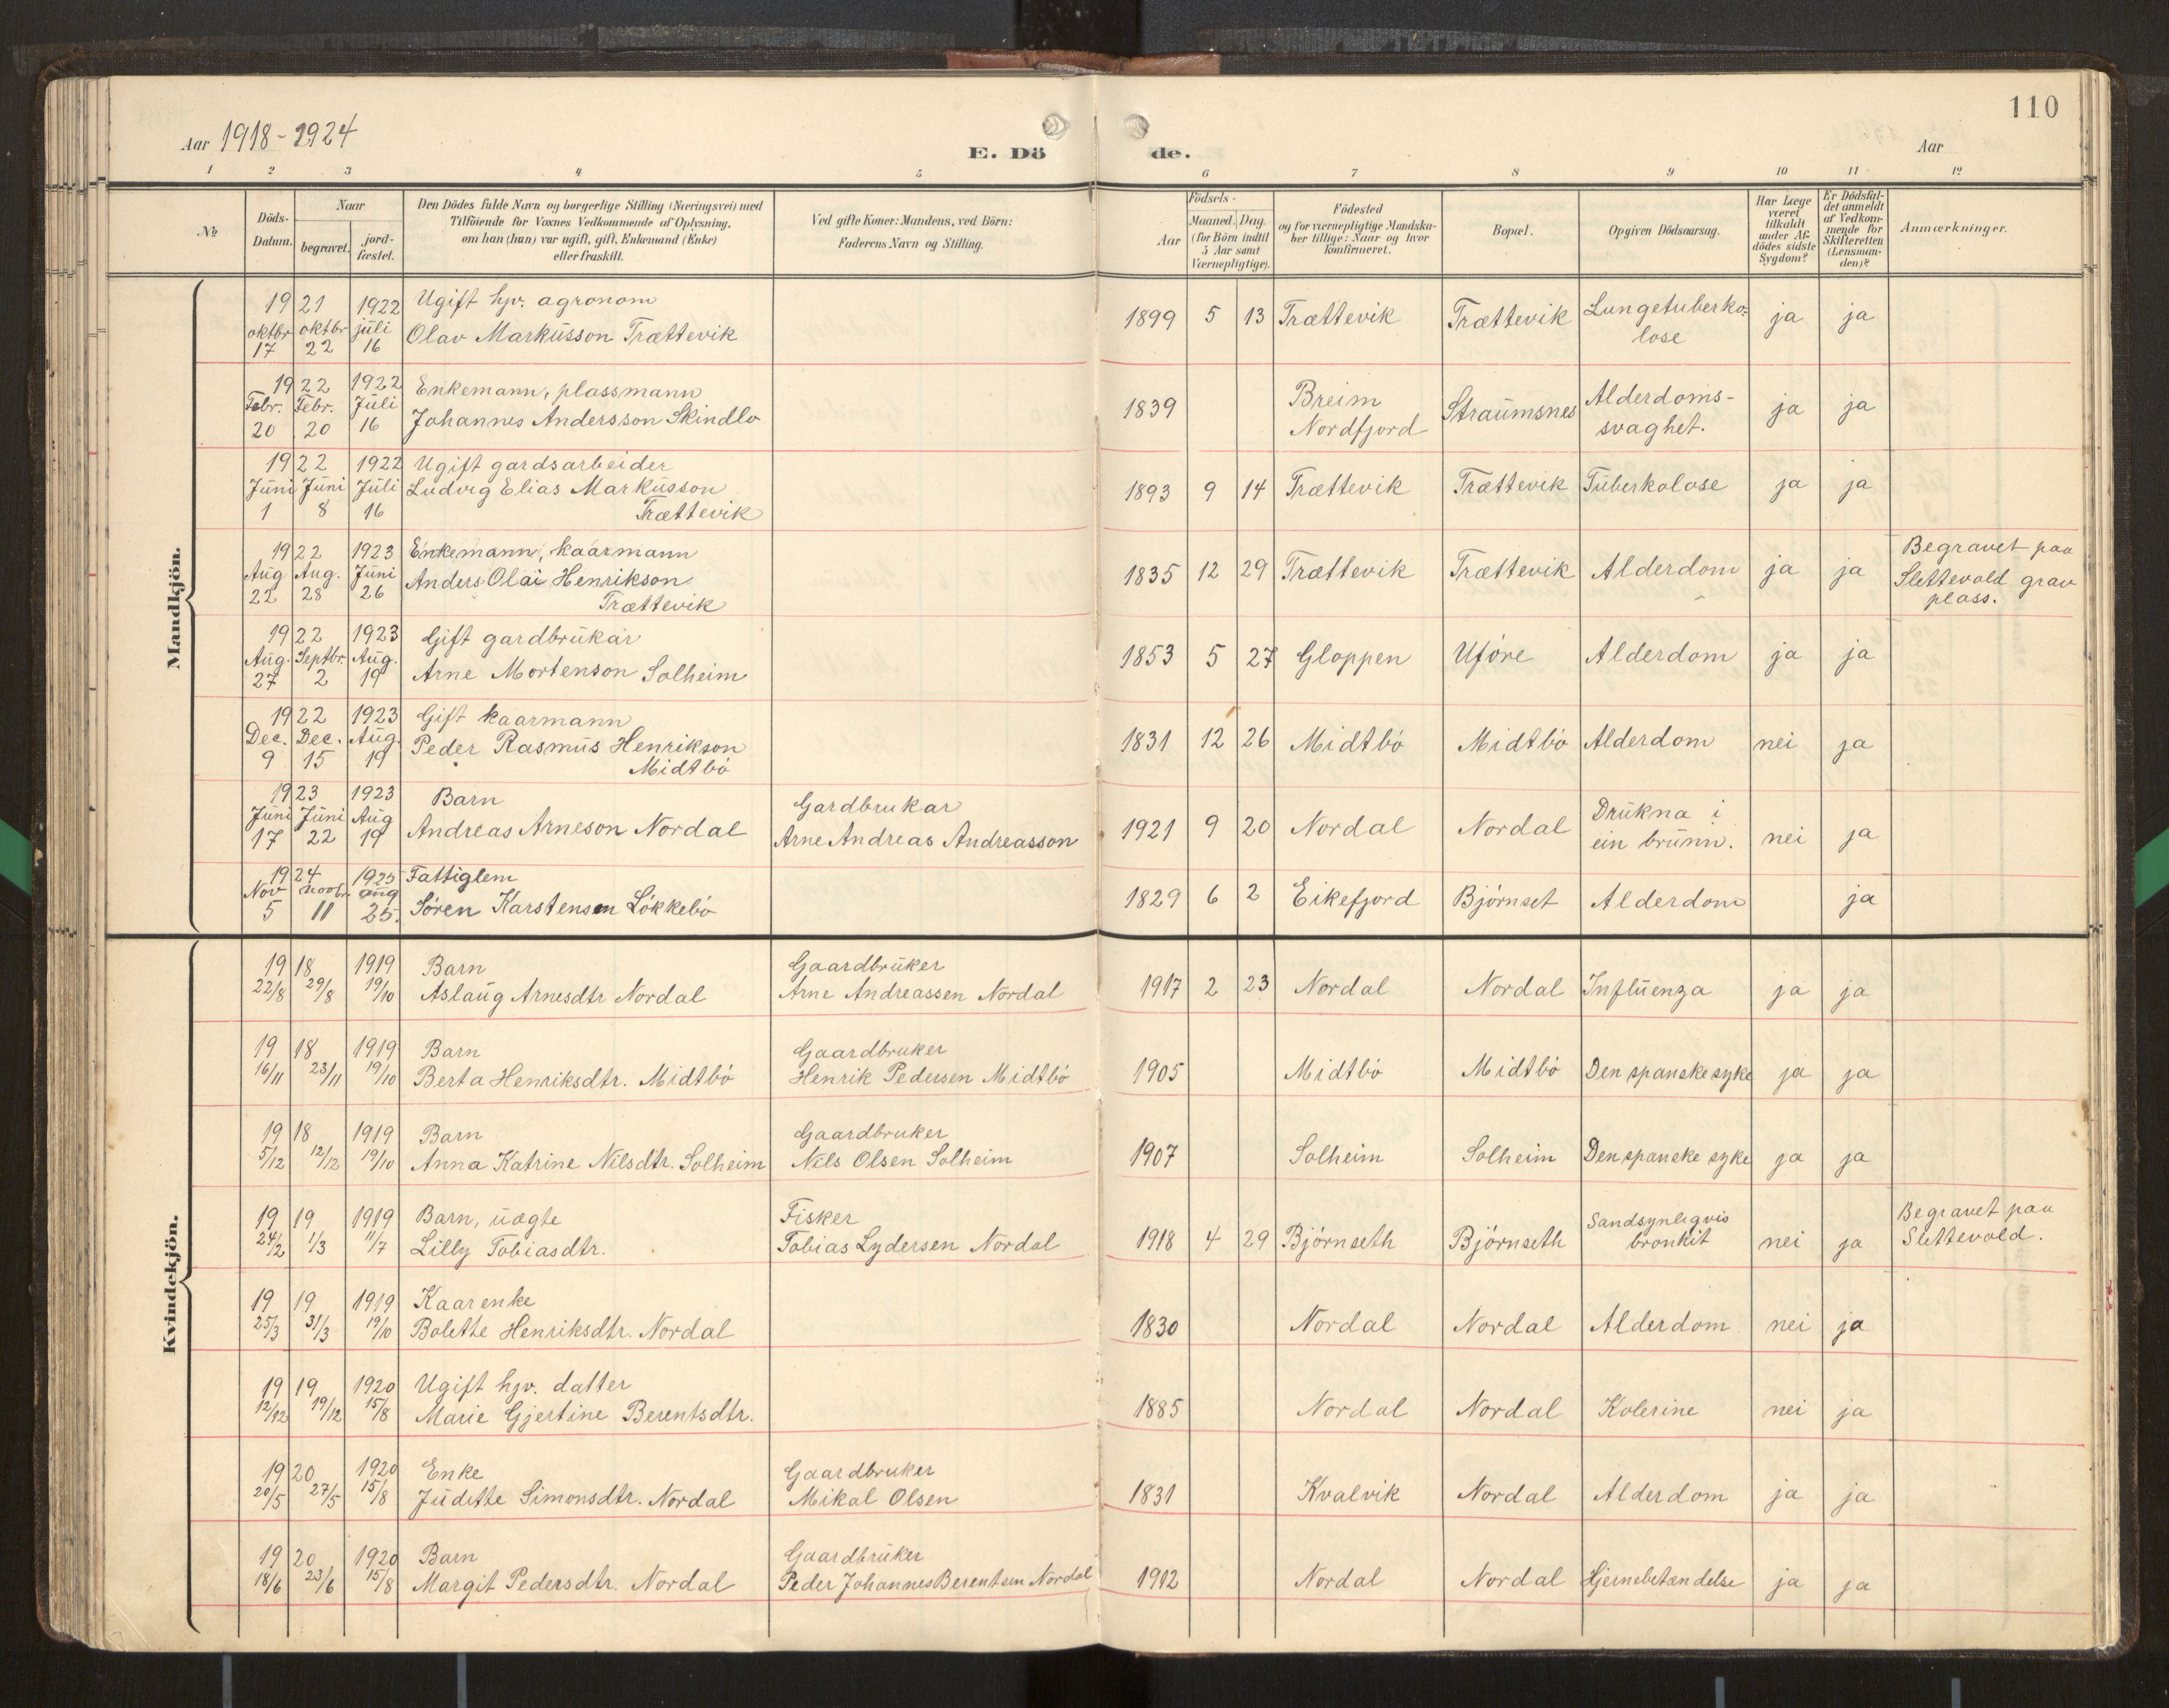 110
Aar 1918-1924
E. Dö de.
Aar
1 2 3 4 5 6 7 8 9 10 11 12
No
Döds-
Datum.
Naar
begravet.
jord-
fæstet.
Den Dödes fulde Navn og borgerlige Stilling (Næringsvei) med
Tilföiende for Voxnes Vedkommende af Oplysning.
om han (hun) var ugift, gift, Enkemand (Enke)
eller fraskilt.
Ved gifte Koner: Mandens, ved Börn:
Faderens Navn og Stilling.
Födsels-
Aar
Maaned. Dag.
(for Börn indtil
5 Aar samt
Værnepligtige).
Födested
og for værnepligtige Mandska-
ber tillige: Naar og hvor
konfirmeret.
Bopæl.
Opgiven Dödsaarsag.
Har Læge
været
tilkaldt
under Af-
dödes sidste
Sygdom?
Er Dödsfal-
det anmeldt
af Vedkom-
mende for
Skifteretten
(Lensman-
den)?
Anmærkninger.
Mandkjön.
1921 1922 Ugift hjv. agronom
oktbr 17 oktbr 22 juli 16 Olav Markusson Trættevik 1899 5 13 Trættevik Trættevik Lungetuberko-
lose ja ja
1922 1922 Enkemann, plassmann
Febr. 20 Febr. 20 Juli 16 Johannes Andersson Skindlo 1839 Breim
Nordfjord Straumsnes Alderdoms-
svaghet. ja ja
1922 1922 Ugift gardsarbeider
Juni 1 Juni 8 Juli 16 Ludvig Elias Markusson
Trættevik 1893 9 14 Trættevik Trættevik Tuberkolose ja ja
1922 1923 Enkemann, kaarmann
Aug 22 Aug. 28 Juni 26 Anders Olai Henrikson
Trættevik 1835 12 29 Trættevik Trættevik Alderdom ja ja Begravet paa
Slettevold grav
plass.
1922 1923 Gift gardbrukar
Aug. 27 Septbr. 2 Aug. 19 Arne Mortenson Solheim 1853 5 27 Gloppen Uføre Alderdom ja ja
1922 1923 Gift kaarmann
Dec. 9 Dec. 15 Aug. 19 Peder Rasmus Henrikson
Midtbø 1831 12 26 Midtbø Midtbø Alderdom nei ja
1923 1923 Barn Gardbrukar
Juni 17 Juni 22 Aug 19 Andreas Arneson Nordal Arne Andreas Andreasson 1921 9 20 Nordal Nordal Drukna i
ein brunn. nei ja
1924 1925 Fattiglem
Nov 5 novbr. 11 aug 25. Søren Karstensen Løkkebø 1829 6 2 Eikefjord Bjørnset Alderdom ja
Kvindekjön.
1918 1919 Barn Gaardbruker
22/8 29/8 19/10 Aslaug Arnesdtr Nordal Arne Andreassen Nordal 1917 2 23 Nordal Nordal Influenza ja ja
1918 1919 Barn Gaardbruker
16/11 23/11 19/10 Berta Henriksdtr. Midtbø Henrik Pedersen Midtbø 1905 Midtbø Midtbø Den spanske syke ja ja
1918 1919 Barn Gaardbruker
5/12 12/12 19/10 Anna Katrine Nilsdtr. Solheim Nils Olsen Solheim 1907 Solheim Solheim Den spanske syke ja ja
1919 1919 Barn, uægte Fisker
24/2 1/3 11/7 Lilly Tobiasdtr. Tobias Lydersen Nordal 1918 4 29 Bjørnseth Bjørnseth Sandsynligvis
bronkit nei ja Begravet paa
Slettevold.
1919 1919 Kaarenke
25/3 31/3 19/10 Bolette Henriksdtr. Nordal 1830 Nordal Nordal Alderdom nei ja
1919 1920 Ugift hjv. datter
12/12 19/12 15/8 Marie Gjertine Berentsdtr. 1885 Nordal Nordal Kolerine nei ja
1920 1920 Enke Gaardbruker
20/5 27/5 15/8 Juditte Simonsdtr. Nordal Mikal Olsen 1831 Kvalvik Nordal Alderdom ja ja
1920 1920 Barn Gaardbruker
18/6 23/6 15/8 Margit Pedersdtr. Nordal Peder Johannes Berentsen Nordal 1912 Nordal Nordal Hjernebetændelse ja ja